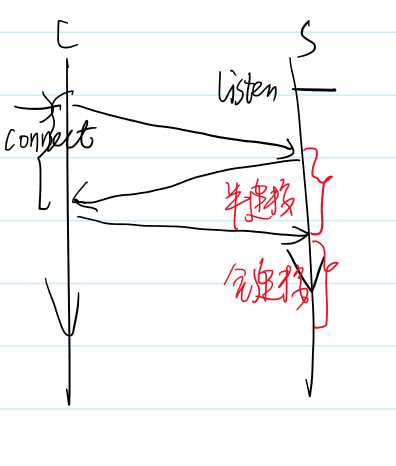 C
S
Listen
connect
半连接
全连接